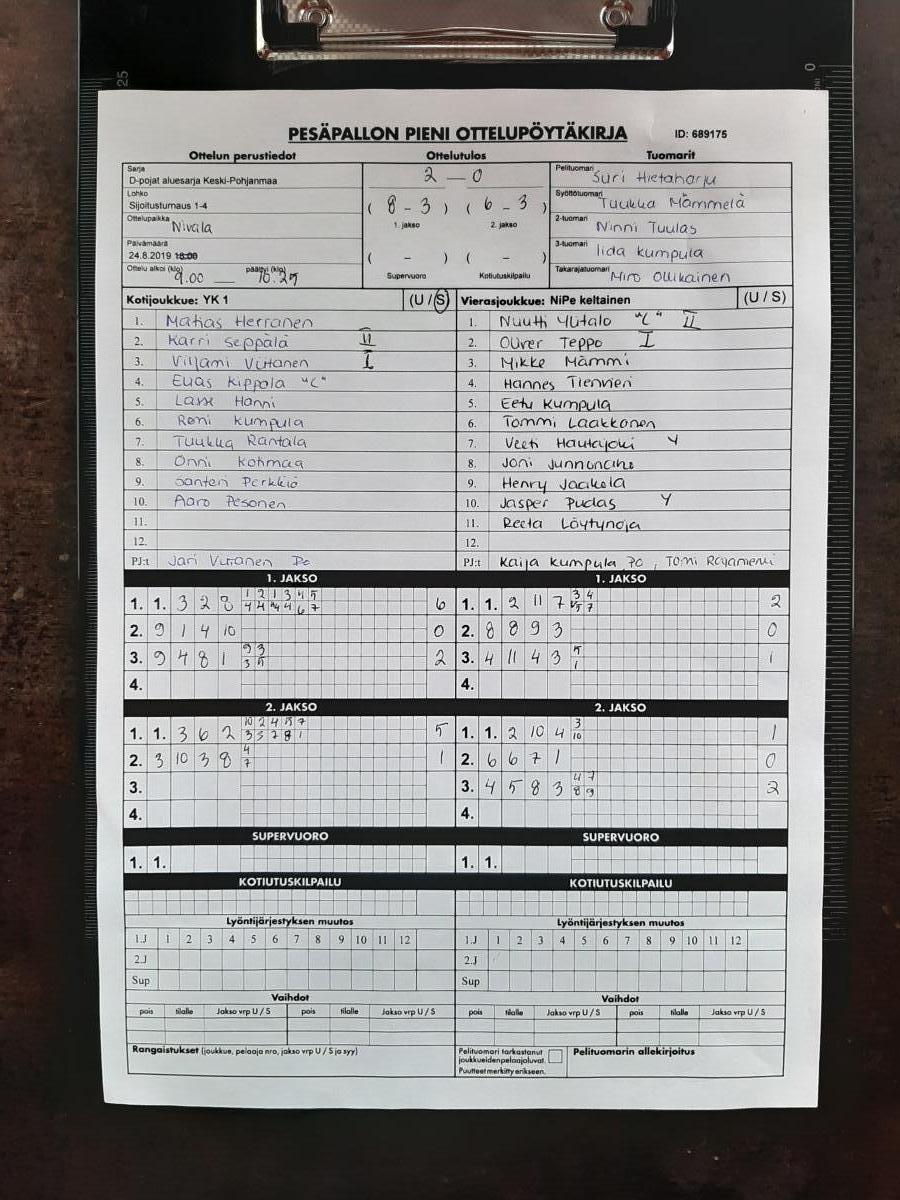 25
0
PESÄPALLON PIENI OTTELUPÖYTÄKIRJA ID: 689175
Ottelun perustiedot Ottelutulos Tuomarit
Sarja
D-pojat aluesarja Keski-Pohjanmaa
2 — 0
Pelituomari Suri Hietaharju
Lohko
Sijoitusturnaus 1-4
(8 - 3) (6 - 3)
1. jakso 2. jakso
Syöttötuomari Tuukka Mämmelä
Ottelupaikka Nivala
2-tuomari Ninni Tuulas
Päivämäärä
24.8.2019 18:00
( - ) ( - )
3-tuomari Iida Kumpula
Ottelu alkoi (klo) 9.00 — päättyi (klo) 10.25
Supervuoro Kotiutuskilpailu
Takarajatuomari Miro Ollikainen
Kotijoukkue: YK 1 (U / S) Vierasjoukkue: NiPe keltainen (U / S)
1. Matias Herranen
2. Karri Seppälä II
3. Viljami Viitanen I
4. Elias Kippola "C"
5. Lasse Hanni
6. Roni Kumpula
7. Tuukka Rantala
8. Onni Kohmaa
9. Santeri Perkkiö
10. Aaro Pesonen
11.
12.
PJ:t Jari Viitanen Po
1. Nuutti Ylitalo "C" II
2. Oliver Teppo I
3. Mikke Mämmi
4. Hannes Tienvieri
5. Eetu Kumpula
6. Tommi Laakkonen
7. Veeti Hautajoki Y
8. Joni
9. Henry Jaakola
10. Jasper Pudas Y
11. Reeta Löytynoja
12.
PJ:t Kaija Kumpula Po, Tomi
1. JAKSO 1. JAKSO
1. 1. 3 2 8 6
2. 9 1 4 10 0
3. 9 4 8 1 9 3 2
3 5
4.
1. 1. 2 11 7 3 4 2
2. 8 8 9 3 0
3. 4 11 4 3 5 1
1
4.
2. JAKSO 2. JAKSO
1. 1. 3 6 2 10 2 4 15 7 5
3 5 7 8 1
2. 3 10 3 8 4 1
7
3.
4.
1. 1. 2 10 4 3 1
10
2. 6 6 7 1 0
3. 4 5 8 3 4 7 2
8 9
4.
SUPERVUORO SUPERVUORO
1. 1. 1. 1.
KOTIUTUSKILPAILU KOTIUTUSKILPAILU
Lyöntijärjestyksen muutos Lyöntijärjestyksen muutos
1.J 1 2 3 4 5 6 7 8 9 10 11 12 1.J 1 2 3 4 5 6 7 8 9 10 11 12
2.J 2.J
Sup Sup
Vaihdot Vaihdot
pois tilalle Jakso vrp U / S pois tilalle Jakso vrp U / S pois tilalle Jakso vrp U / S pois tilalle Jakso vrp U / S
Rangaistukset (joukkue, pelaaja nro, jakso vrp U / S ja syy)
Pelituomari tarkastanut
joukkueiden pelaajaluvat.
Puutteet merkitty erikseen.
Pelituomarin allekirjoitus